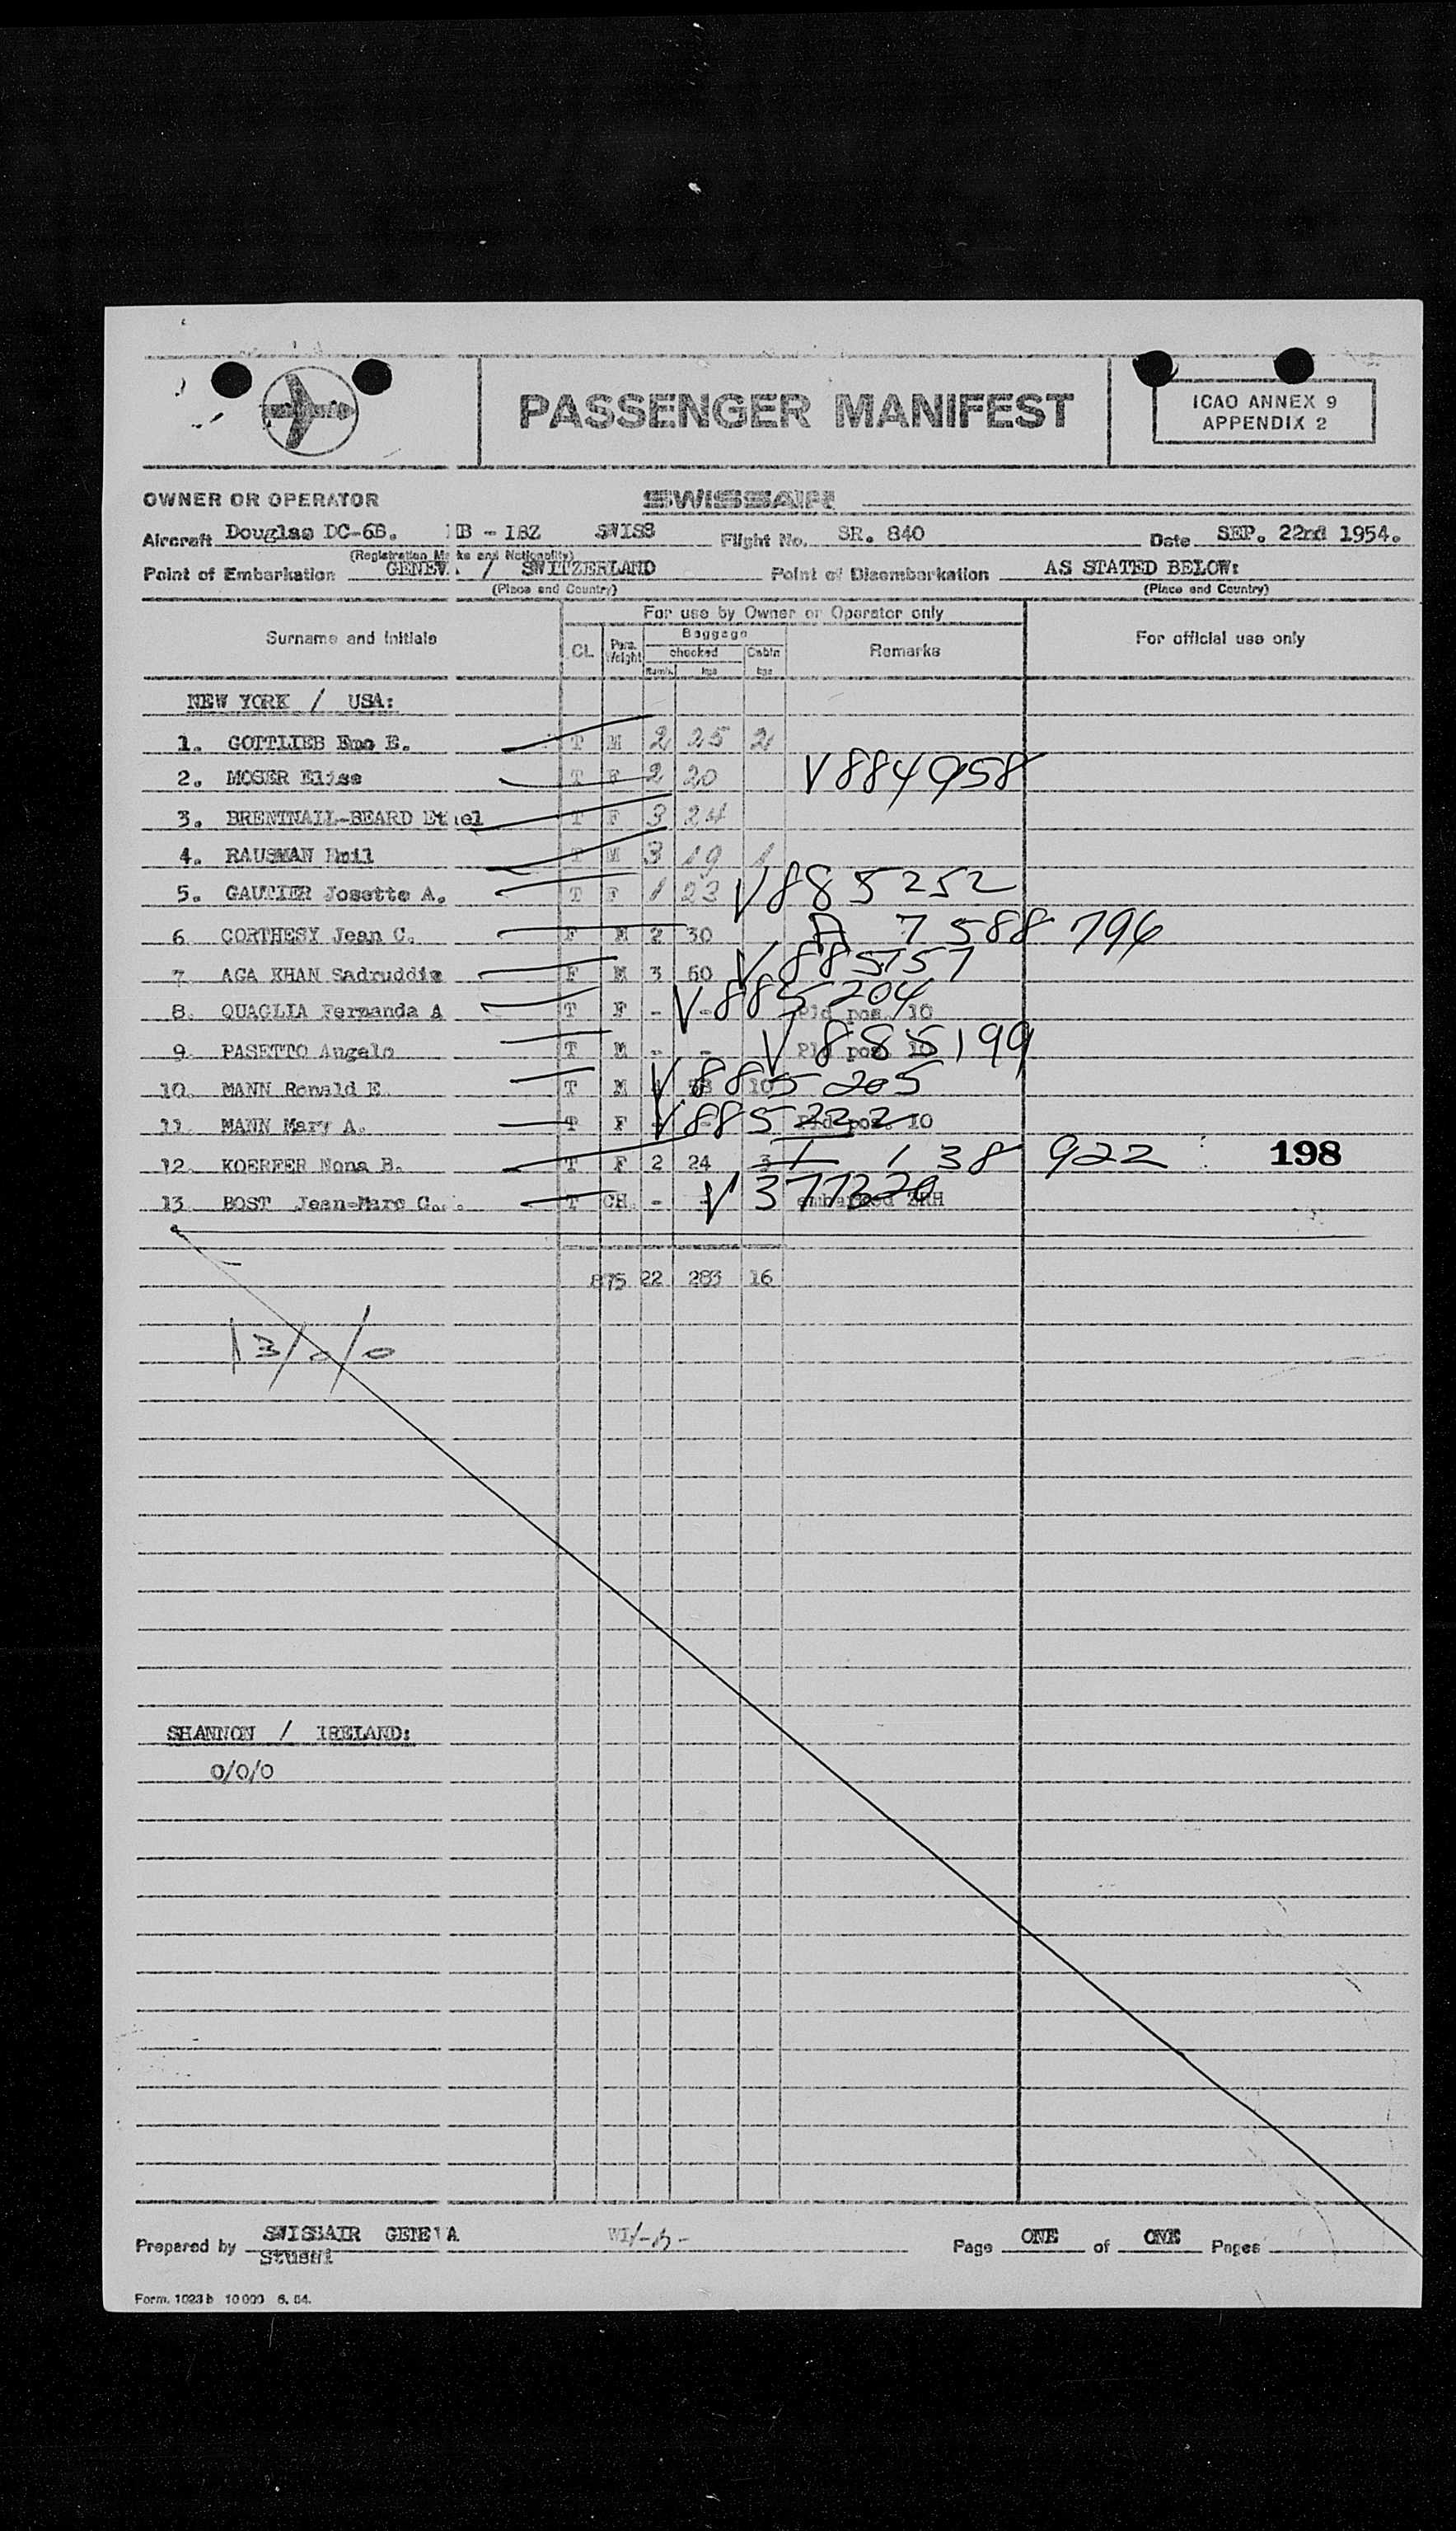 PASSENGER MANIFEST
ICAO ANNEX 9
APPENDIX 2
OWNER OR OPERATOR SWISSAIR
Aircraft Douglas DC-6B. HB - IBZ SWISS Flight No. SR. 840 Date SEP. 22nd 1954.
(Registration Marks and Nationality)
Point of Embarkation GENEVA / SWITZERLAND Point of Disembarkation AS STATED BELOW:
(Place and Country) (Place and Country)
For use by Owner or Operator only
Surname and Initials CL. Pass. Weight Baggage checked Numb. kgs Cabin kgs Remarks For official use only
NEW YORK / USA:
1. GOTTLIEB E. T M 2 25 2
2. MOSER Elise T F 2 20 V884958
3. BRENTNALL-BEARD Ethel T F 3 24
4. RAUSMAN Emil T M 3 19 1
5. GAUTIER Josette A. T F 1 23 V885252
6 CORTHESY Jean C. F M 2 30 A 7 588 796
7 AGA KHAN Sadruddin F M 3 60 V885757
8. QUAGLIA Fernanda A T F - - V885204 Pld pos. 10
9 PASETTO Angelo T M - - V885199 Pld pos. 10
10. MANN Ronald E. T M 10 V885205
11. MANN Mary A. T F - V885222 Pld pos. 10
12. KOERFER Nona B. T F 2 24 3 1 138 922 198
13 BOST Jean-Marc C. T CH. - - V377320 embarked ZRH
875 22 283 16
13/0/0
SHANNON / IRELAND:
0/0/0
Prepared by SWISSAIR GENEVA Page ONE of ONE Pages
Form. 1023 b 10 000 6. 54.